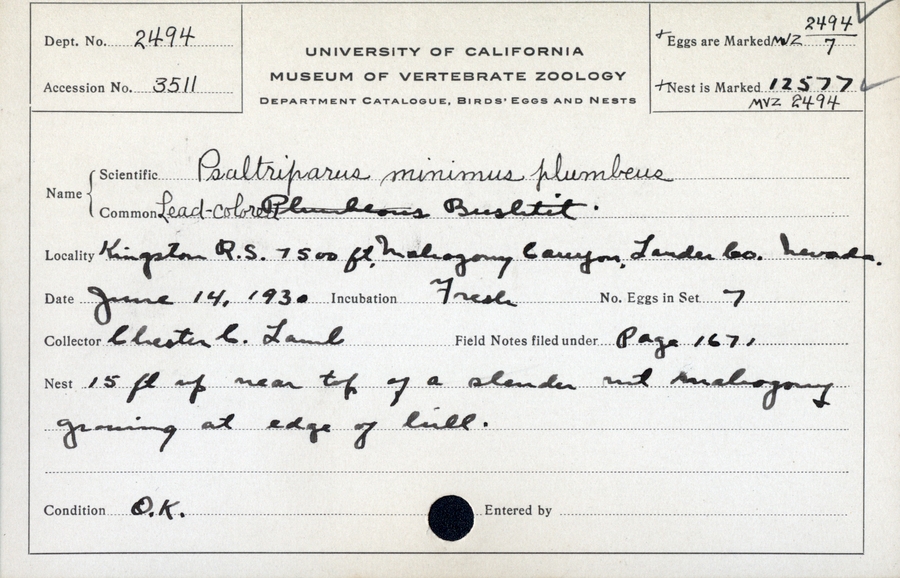 Dept. No. 2494
Accession No. 3511
UNIVERSITY OF CALIFORNIA
MUSEUM OF VERTEBRATE ZOOLOGY
DEPARTMENT CATALOGUE, BIRDS' EGGS AND NESTS
+Eggs are Marked MVZ 2494/7
+Nest is Marked 12577
MVZ 2494
Name
Scientific Psaltriparus minimus plumbeus
Common Lead-colored Plumbeous Bushtit.
Locality Kingston R.S. 7500 ft, Mahogany Canyon, Lander Co. Nevada.
Date June 14, 1930 Incubation Fresh No. Eggs in Set 7
Collector Chester C. Lamb Field Notes filed under Page 1671
Nest 15 ft up near top of a slender mt mahogony
growing at edge of hill.
Condition O.K. Entered by